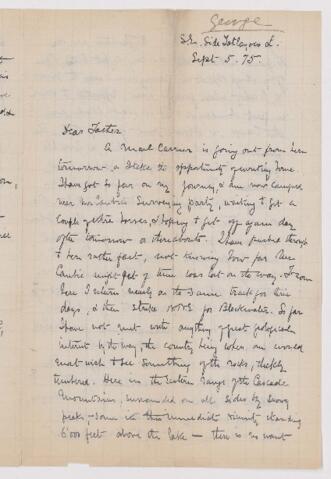 George
S.E. Side Tatlayoco L.
Sept 5. 75.
Dear Father
A Mail Carrier is going out from here
tomorrow, & I take the opportunity of writing home.
I have got so far on my journey, & am now camped
near Surveying party, waiting to get a
couple of extra horses, & hoping to get off again day
after tomorrow or thereabouts. I have pushed through
to here rather fast, not knowing how far
might get if time was lost on the way. From
here I return nearly on the same track for three
days, & then strike North for Blackwater. So far
I have not met with anything of great geological
interest by the way the country being where one would
most wish to see something of the rocks, thickly
timbered. Here in the Eastern range of the Cascade
Mountains, surrounded on all sides by snowy
peaks, – some in the immediate vicinity standing
6000 feet above the lake – there is no want